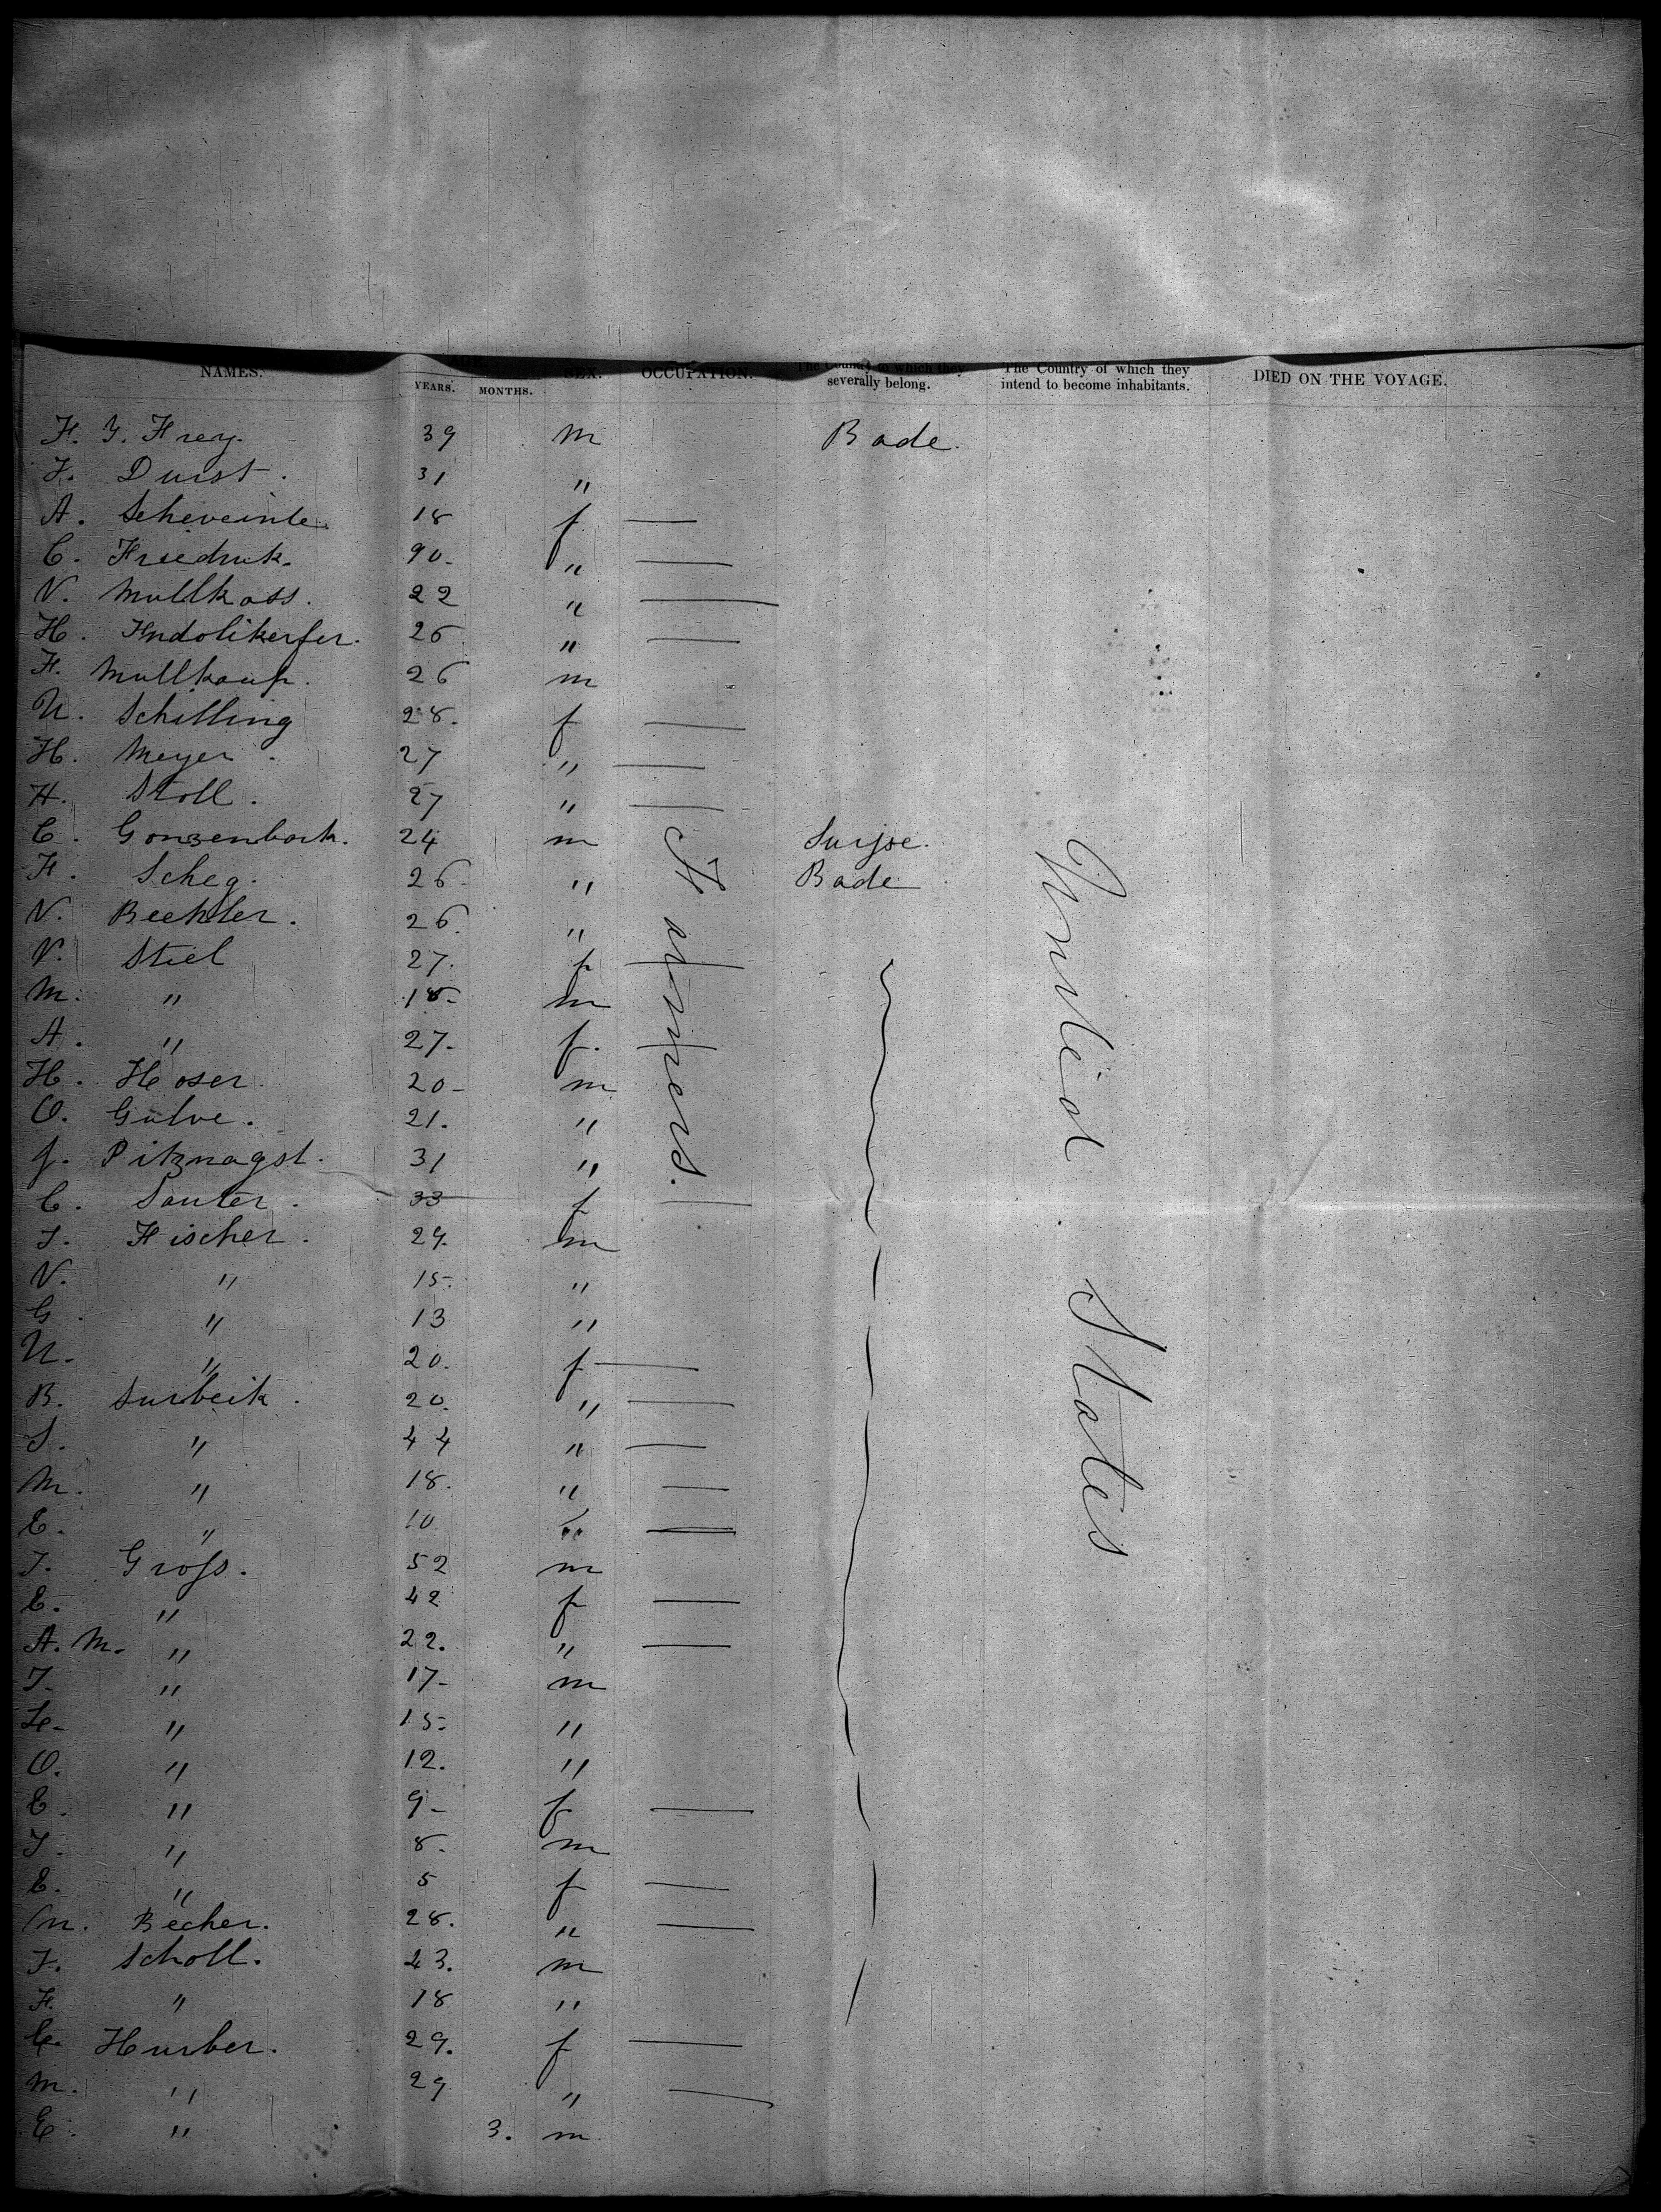 NAMES. YEARS. MONTHS. SEX. OCCUPATION. The Country to which they severally belong. The Country of which they intend to become inhabitants. DIED ON THE VOYAGE.
F. J. Frey. 39 m Bade.
F. Durst. 31 "
A. Scheveinle 18 f —
C. Friedruk. 90. " —
N. Mullkass. 22 " —
H. 26 " —
F. Mullkaup. 26 m
U. Schilling 28. f —
H. Meyer. 27 " —
H. Stoll. 27 " —
C. Gonzenbach. 24 m Suisse.
F. Scheg. 26 " Bade
N. Bechler. 26. "
N. Stiel 27. f —
M. " 18. m
A. " 27. f. —
H. Hoser. 20 - m
O. Gulve. 21. "
J. Pitznagst. 31 "
C. Sauter. 33 f —
J. Fischer. 24. m
N. " 15. "
G. " 13 "
U. " 20. f —
B. Surbeik. 20. " —
S. " 44 " —
M. " 18. " —
E. " 10 " —
J. Groſs. 52 m
E. " 42 f —
A. M. " 22. " —
J. " 17- m
L. " 15. "
O. " 12. "
E. " 9- f —
J. " 8. m
E. " 5 f —
M. Becher. 28. " —
J. Scholl. 23. m
F. " 18 "
C. Hurber. 29. f —
M. " 29 " —
E. " 3. m
Farmers.
United States